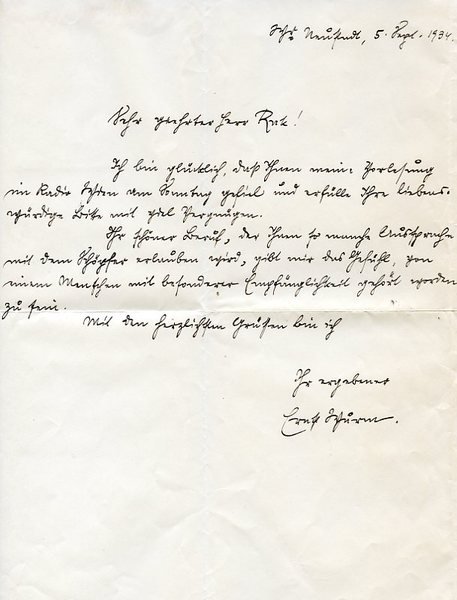 Wr. Neustadt, 5. Sept. 1934.
Sehr geehrter Herr Rat!
Ich bin glücklich, daß Ihnen meine Vorlesung
im Radio Wien am Sonntag gefiel und erfülle Ihre liebens-
würdige Bitte mit viel Vergnügen.
Ihr schöner Beruf, der Ihnen so manche Aussprache
mit dem Schöpfer erlauben wird, gibt mir das Gefühl, von
einem Menschen mit besonderer Empfänglichkeit gehört worden
zu sein.
Mit den herzlichsten Grüßen bin ich
Ihr ergebener
Ernst Wurm.